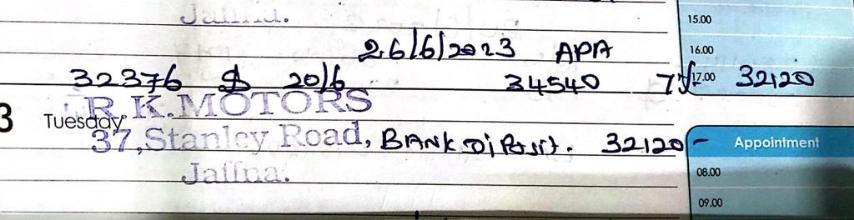 Jaffna.
15.00
26/6/2023 APA
16.00
32376 $ 20/6 34540 7 17.00 32120
R.K.MOTORS
3 Tuesday
37, Stanley Road, BANK Diposit. 32120 -
Appointment
Jaffna.
08.00
09.00